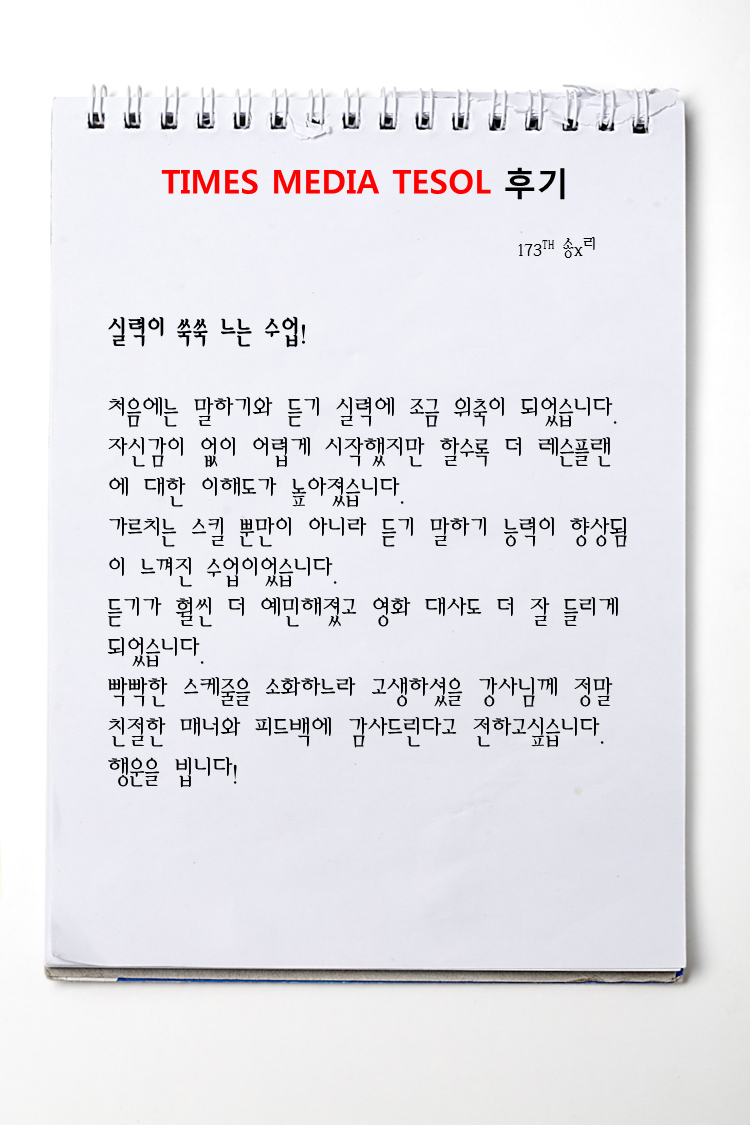 TIMES MEDIA TESOL 후기
173TH 송x리
실력이 쑥쑥 느는 수업!
처음에는 말하기와 듣기 실력에 조금 위축이 되었습니다.
자신감이 없이 어렵게 시작했지만 할수록 더 레슨플랜
에 대한 이해도가 높아졌습니다.
가르치는 스킬 뿐만이 아니라 듣기 말하기 능력이 향상됨
이 느껴진 수업이었습니다.
듣기가 훨씬 더 예민해졌고 영화 대사도 더 잘 들리게
되었습니다.
빡빡한 스케줄을 소화하느라 고생하셨을 강사님께 정말
친절한 매너와 피드백에 감사드린다고 전하고싶습니다.
행운을 빕니다!